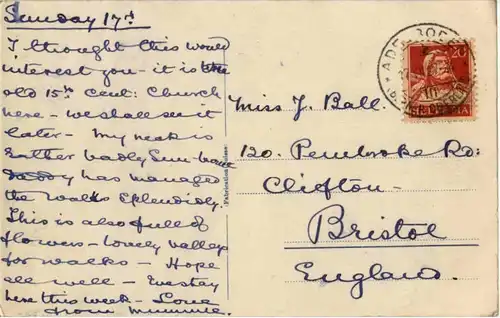 Sunday 17th
I thought this would
interest you - it is the
old 15th Cent: Church
here - we shall see it
later - My neck is
rather badly sun-burnt
Daddy has managed
the walks splendidly.
This is also full of
flowers - lovely valleys
for walks - Hope
all well - We stay
here this week - Love
from Mummie.
Miss J. Ball.
120. Pembroke Rd:
Clifton -
Bristol
England.
20
HELVETIA